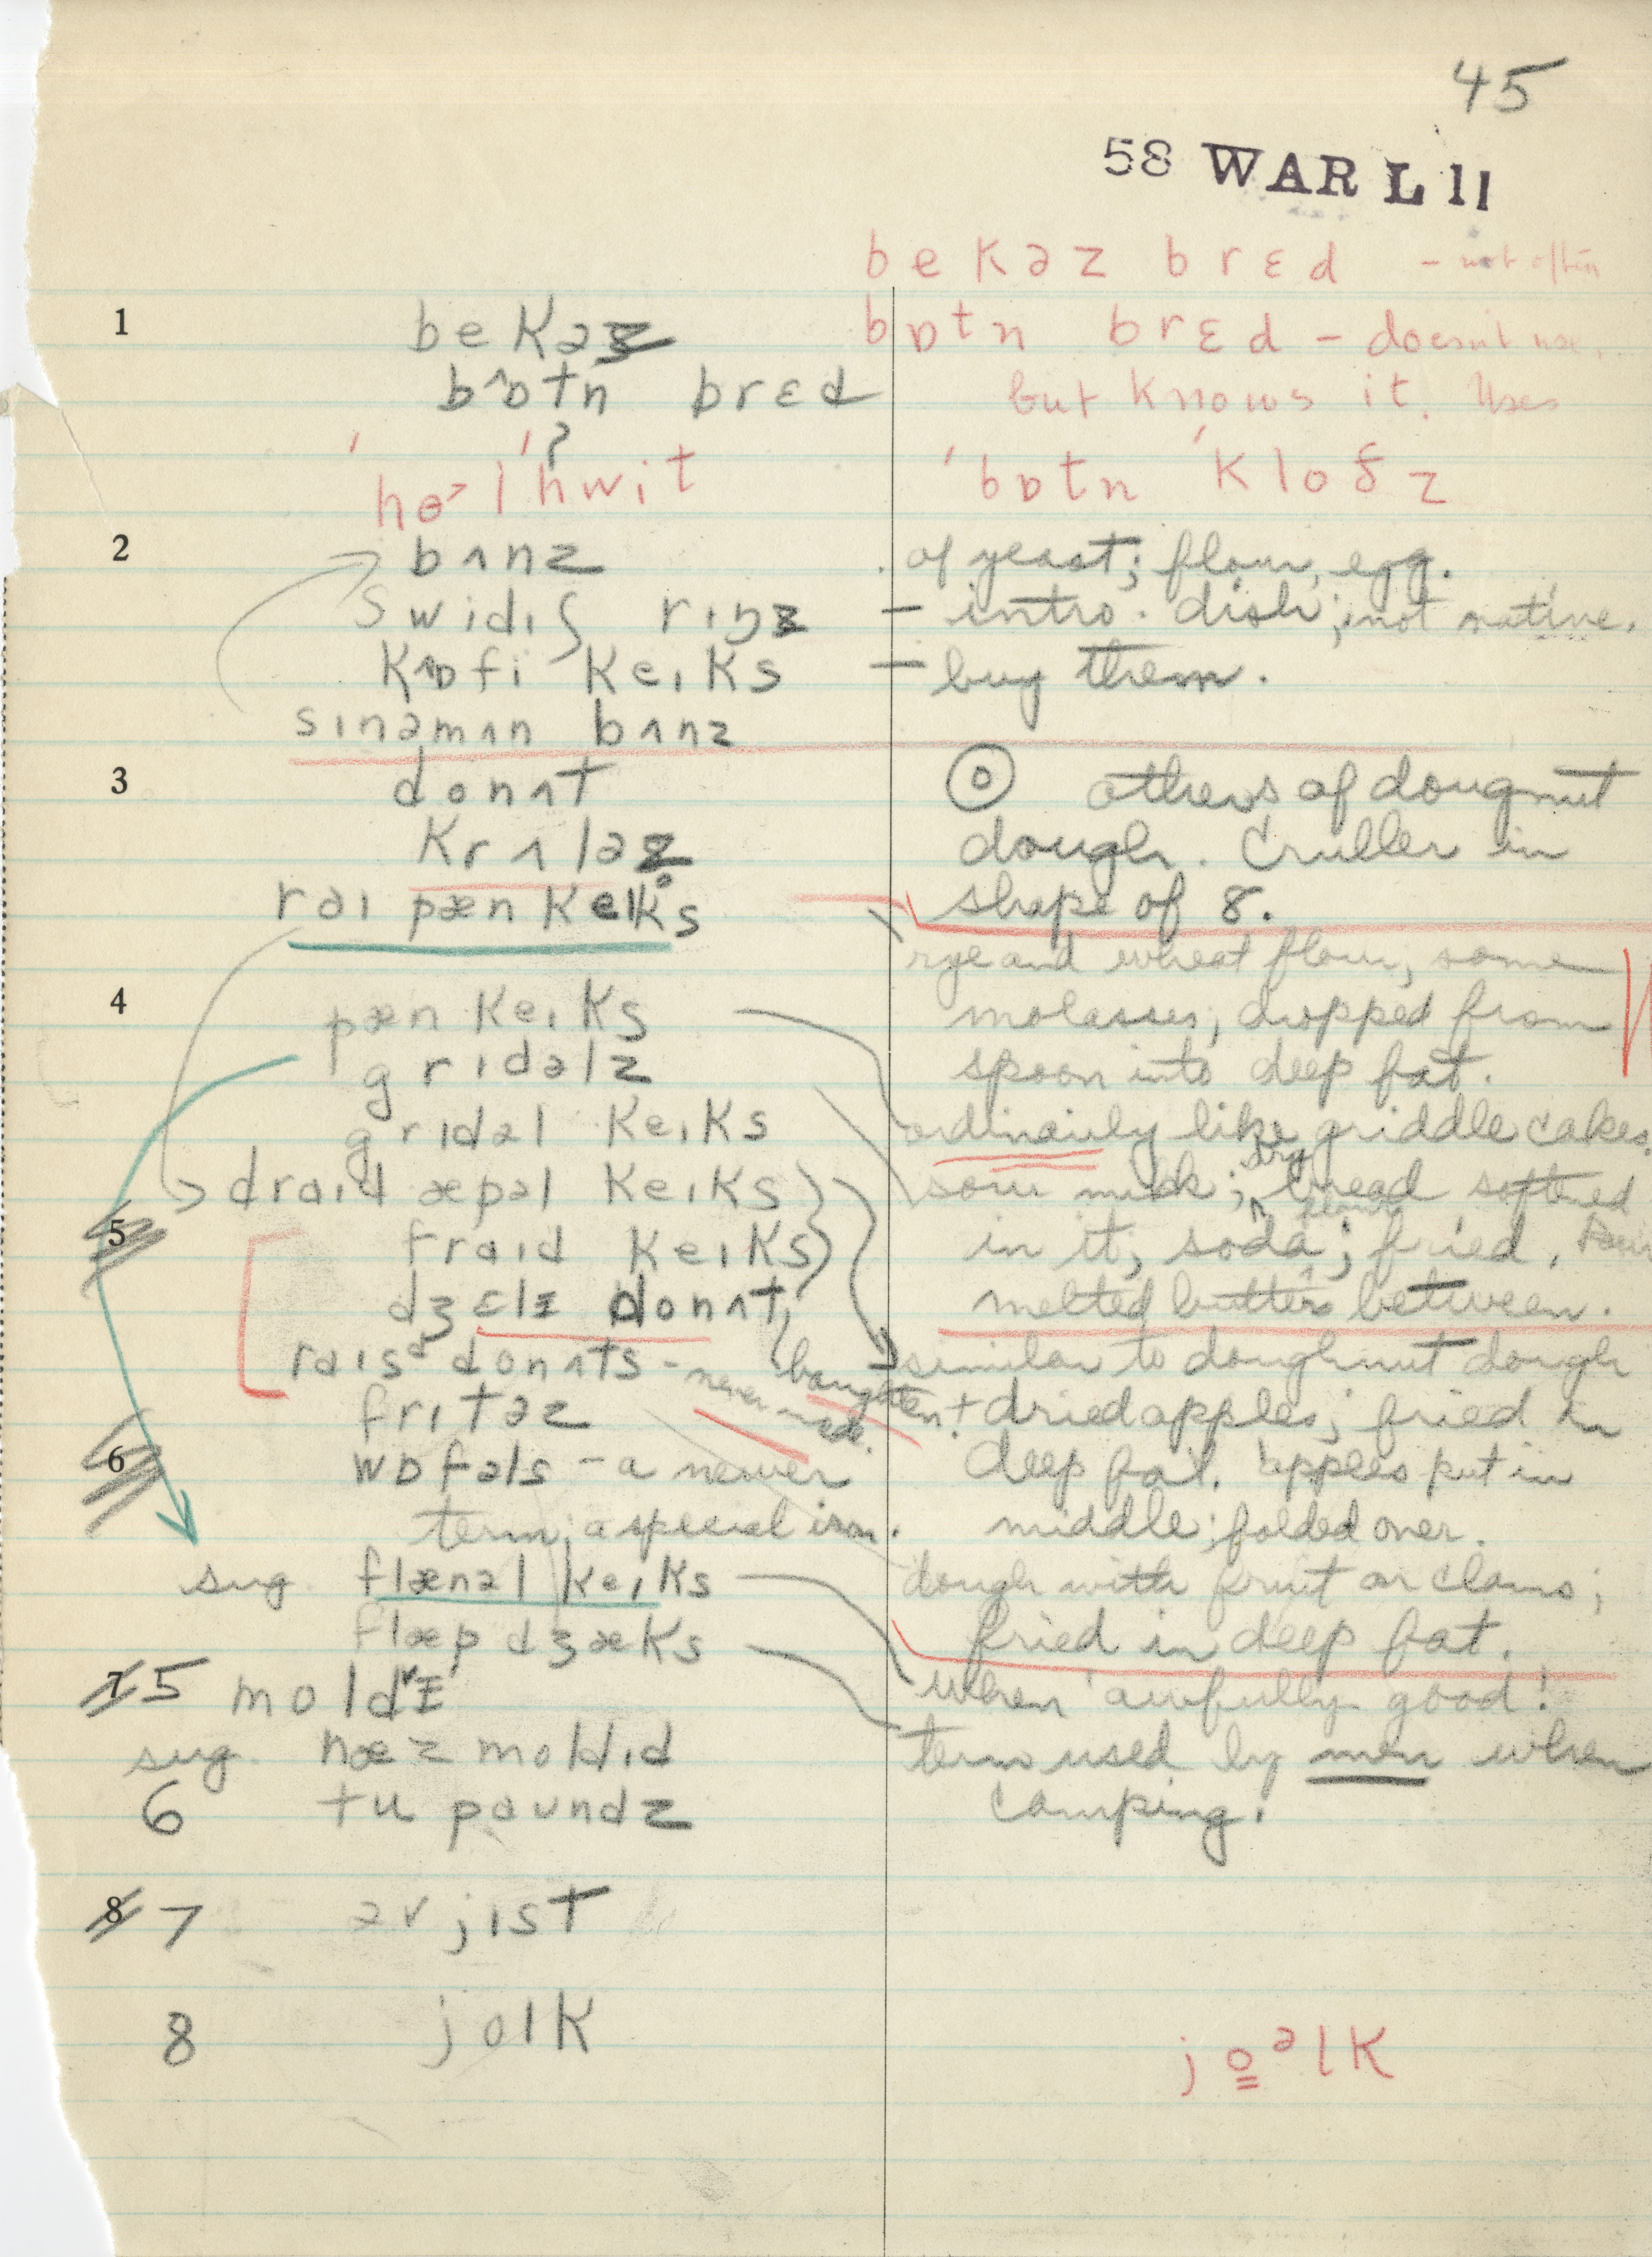 45
58 WAR L 11
bekəz brɛd – not often
1 bekəz bɒtn brɛd – doesn't use,
bɒtn brɛd but knows it. Uses
'hoˑl 'hwit 'bɒtn 'kloðz
2 bʌnz of yeast; flour, egg.
swidiʃ rɪŋz – intro. dish; not native.
kɒfi keɪks – buy them.
sɪnəmʌn bʌnz
3 donʌt others of doughnut
krʌləz dough. Cruller in
raɪ pænkeɪks shape of 8.
rye and wheat flour, some
4 pænkeɪks molasses, dropped from
grɪdəlz spoon into deep fat.
grɪdəl keɪks ordinarily like griddle cakes.
draɪd æpəl keɪks sour milk; dry bread softened
5 fraɪd keɪks in it, soda; flour fried.
dʒɛlɪ donʌt, boughten melted butter between.
raɪsd donʌts – never made. similar to doughnut dough
frɪtəz + dried apples; fried in
6 wɒfəls – a newer deep fat. apples put in
term; a special iron. middle; folded over.
sug. flænəl keɪks dough with fruit or clams;
flæpdʒæks fried in deep fat.
7 5 moldɪ when 'awfully good'!
sug. næz moldɪd term used by men when
6 tu paʊndz camping.
8 7 əv jist
8 jolk joᵊlk